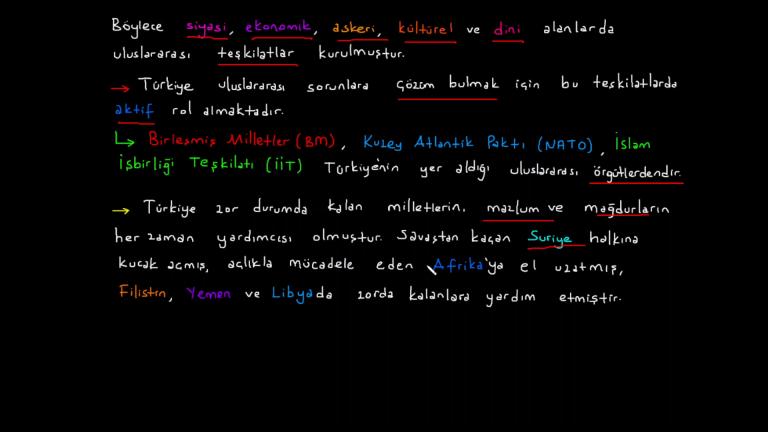 Böylece siyasi, ekonomik, askeri, kültürel ve dini alanlarda
uluslararası teşkilatlar kurulmuştur.
→ Türkiye uluslararası sorunlara çözüm bulmak için bu teşkilatlarda
aktif rol almaktadır.
↳ Birleşmiş Milletler (BM), Kuzey Atlantik Paktı (NATO), İslam
İşbirliği Teşkilatı (İİT) Türkiye'nin yer aldığı uluslararası örgütlerdendir.
→ Türkiye zor durumda kalan milletlerin, mazlum ve mağdurların
her zaman yardımcısı olmuştur. Savaştan kaçan Suriye halkına
kucak açmış, açlıkla mücadele eden Afrika'ya el uzatmış,
Filistin, Yemen ve Libyada zorda kalanlara yardım etmiştir.